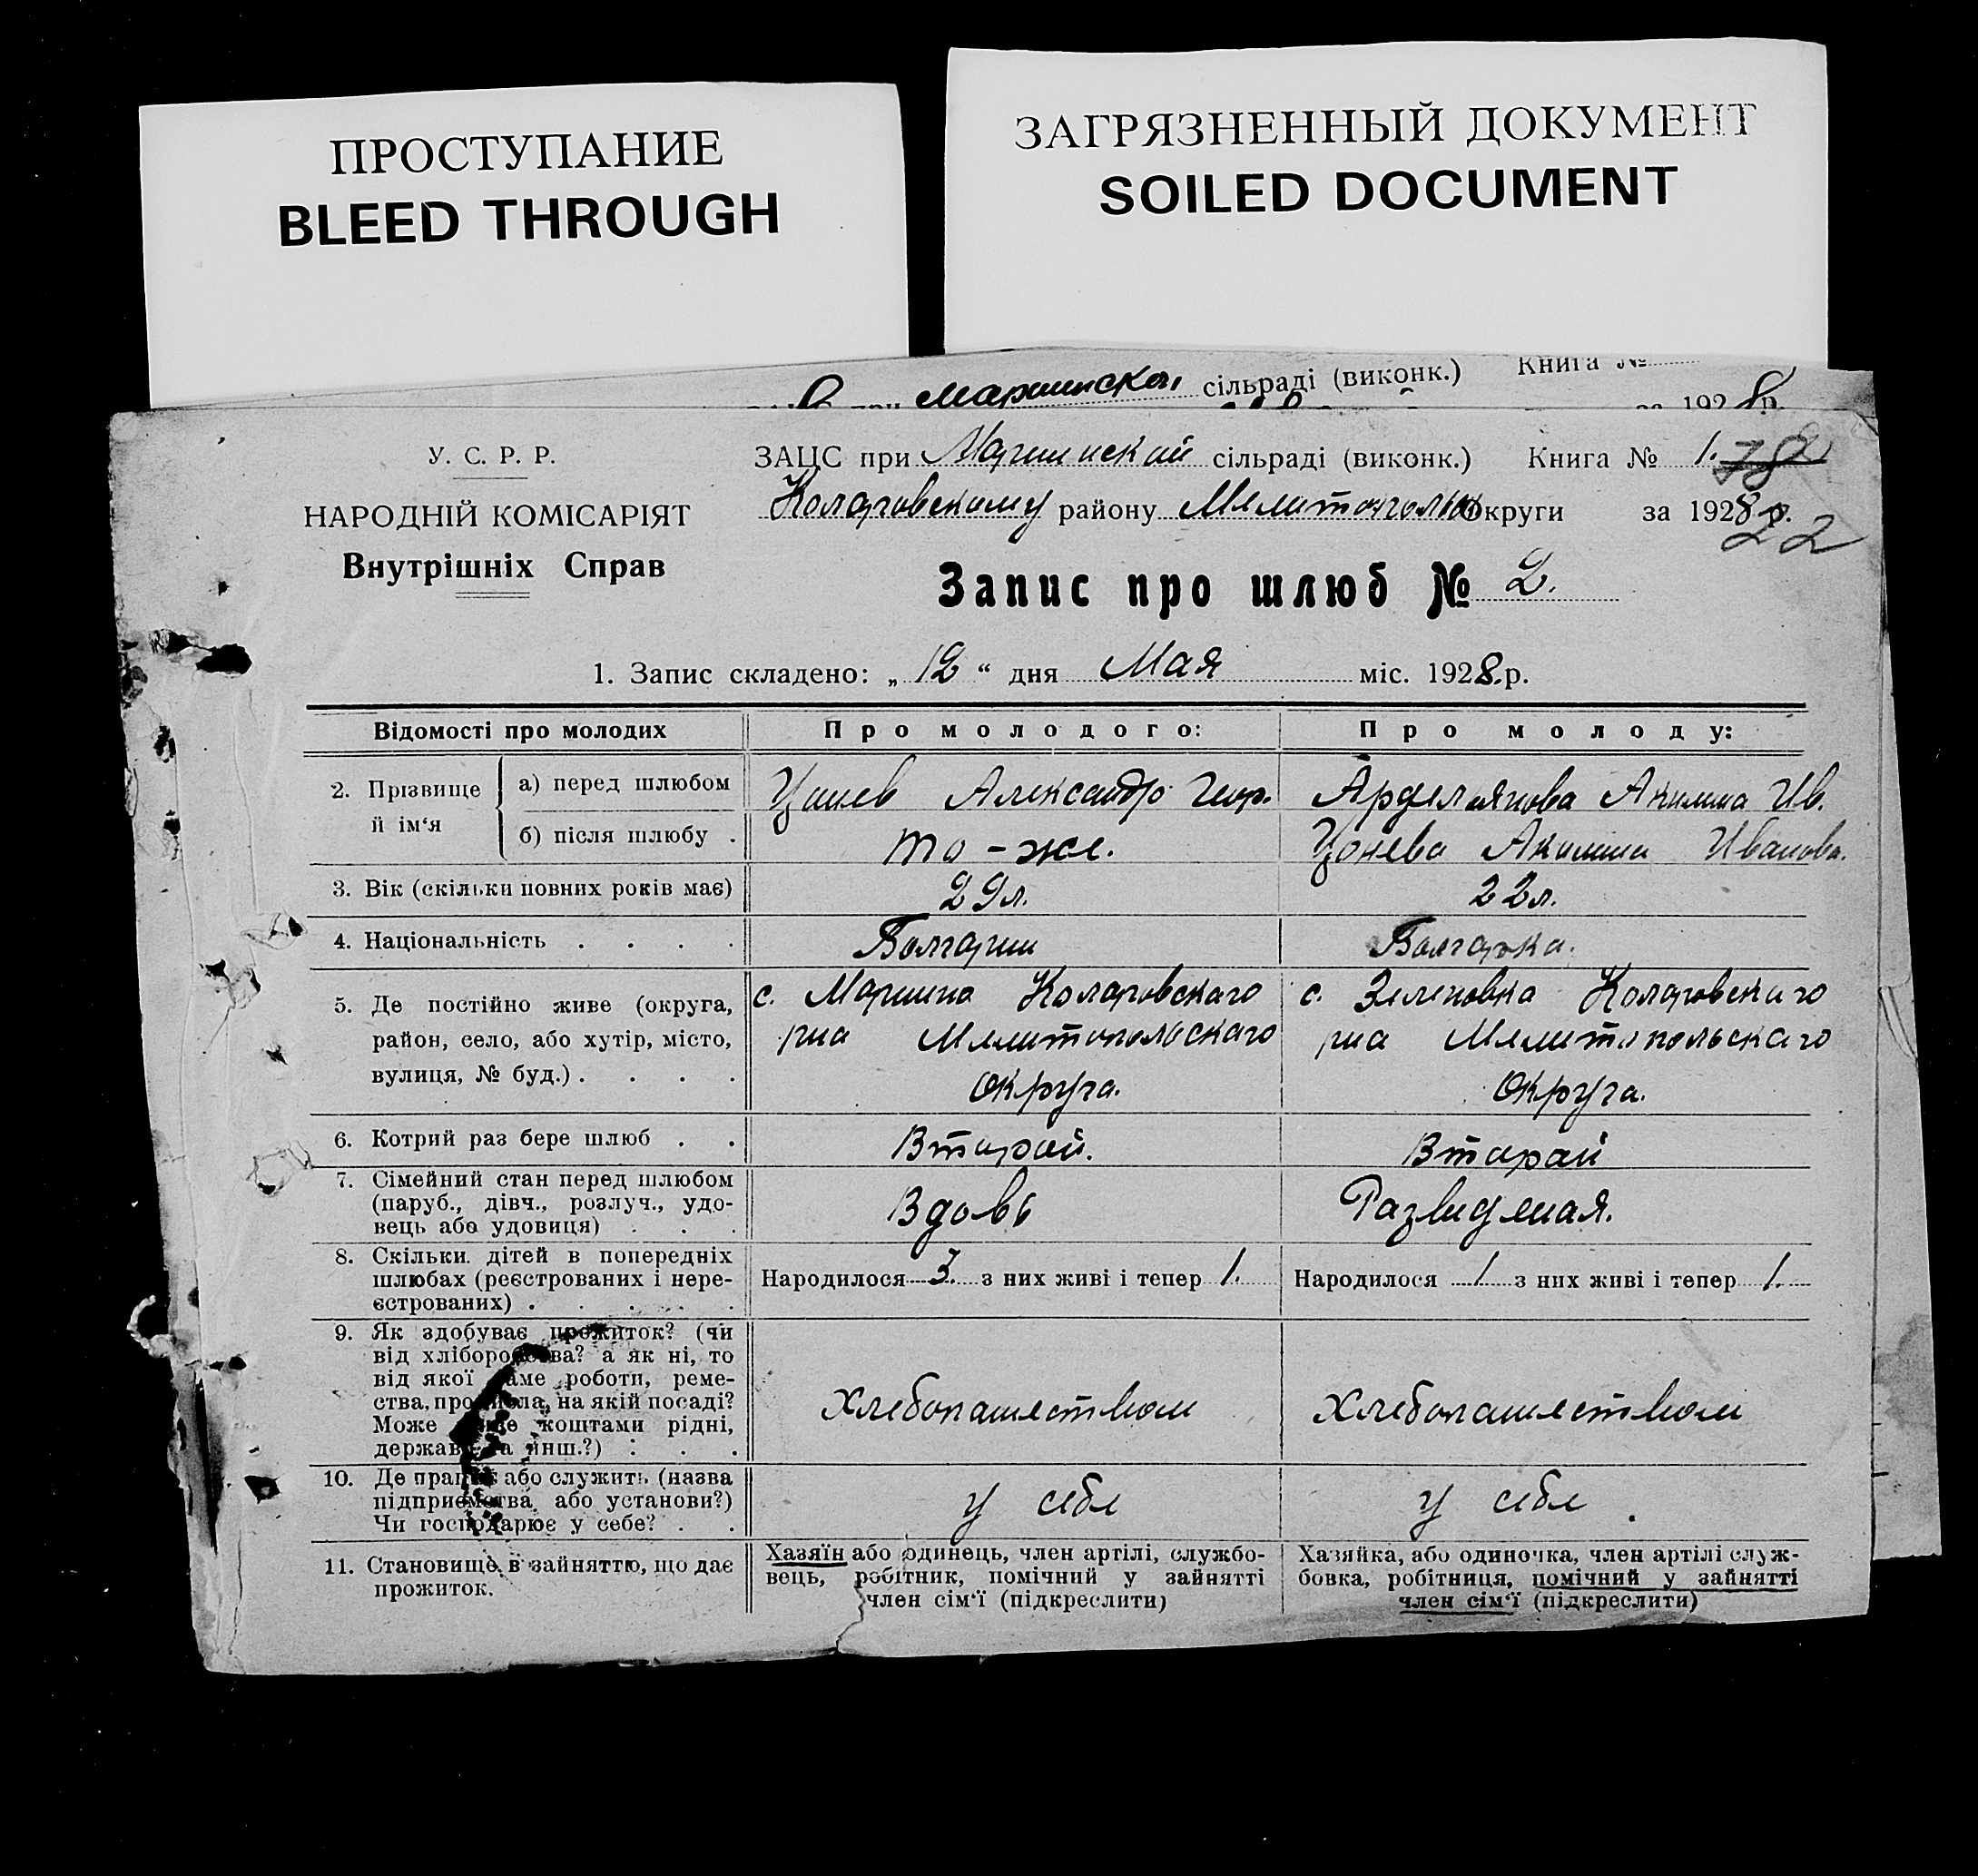 ПРОСТУПАНИЕ
BLEED THROUGH
ЗАГРЯЗНЕННЫЙ ДОКУМЕНТ
SOILED DOCUMENT
сільраді (виконк.) Книга №
1928р.
У. С. Р. Р.
НАРОДНІЙ КОМІСАРІЯТ
Внутрішніх Справ
ЗАЦС при Мариинской сільраді (виконк.) Книга № 1. 78
Коларовскому району Мелитополь округи за 1928 р.
22
Запис про шлюб № 2.
1. Запис складено: „ 12 “ дня Мая міс. 1928.р.
Відомості про молодих Про молодого: Про молоду:
2. Прізвище й ім‘я
а) перед шлюбом Цонев Александр Геор. Арделянова Акилина Ив.
б) після шлюбу . то-же. Цонева Акилина Иванова.
3. Вік (скільки повних років має) 29 л. 22 л.
4. Національність . . . . Болгарин Болгарка.
5. Де постійно живе (округа, с. Марино Коларовскаго с. Зеленовка Коларовскаго
район, село, або хутір, місто, рна Мелитопольскаго рна Мелитопольскаго
вулиця, № буд.) . . . . округа. Округа.
6. Котрий раз бере шлюб . . Второй. Второй
7. Сімейний стан перед шлюбом
(паруб., дівч., розлуч., удо- Вдовь Разведеная.
вець або удовиця) . . .
8. Скільки. дітей в попередніх
шлюбах (реєстрованих і нере- Народилося 3. з них живі і тепер 1. Народилося 1 з них живі і тепер 1.
єстрованих) . . . . .
9. Як здобуває прожиток? (чи
від хліборобства? а як ні, то
від якої саме роботи, реме-
ства, промисла, на якій посаді? Хлебопашеством Хлебопашеством
Може живе коштами рідні,
держави та инш.?) : . .
10. Де працює або служить (назва
підприємства або установи?) у себе у себе.
Чи господарює у себе? . .
11. Становище в зайняттю, що дає Хазяїн або одинець, член артілі, службо- Хазяйка, або одиночка, член артілі служ-
прожиток. вець, робітник, помічний у зайнятті бовка, робітниця, помічний у зайнятті
член сім‘ї (підкреслити) член сім‘ї (підкреслити)